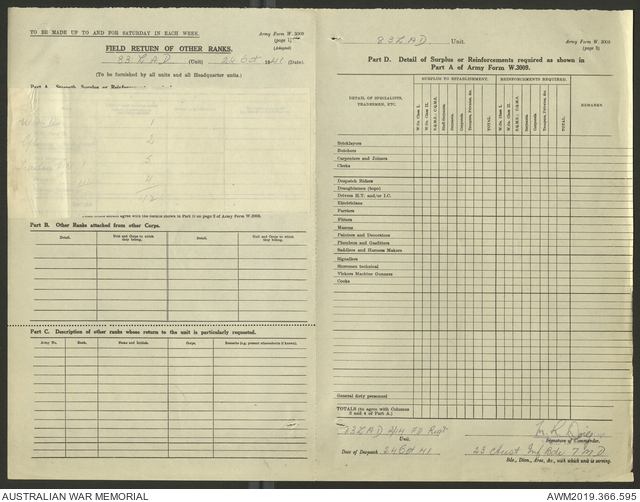 TO BE MADE UP TO AND FOR SATURDAY IN EACH WEEK.
Army Form W. 3009
(page 1)
(Adapted)
FIELD RETURN OF OTHER RANKS.
83 LAD (Unit) 24 Oct 1941 (Date).
(To be furnished by all units and all Headquarter units.)
1
2
5
4
12
Part B. Other Ranks attached from other Corps.
Detail.
Unit and Corps to which they belong.
Detail.
Unit and Corps to which they belong.
Part C. Description of other ranks whose return to the unit is particularly requested.
Army No.
Rank.
Name and Initials.
Corps.
Remarks (e.g. present whereabouts if known).
83 LAD Unit.
Army Form W. 3009
(page 2)
Part D. Detail of Surplus or Reinforcements required as shown in
Part A of Army Form W.3009.
DETAIL OF SPECIALISTS, TRADESMEN, ETC.
SURPLUS TO ESTABLISHMENT.
REINFORCEMENTS REQUIRED.
REMARKS.
W.Os. Class I.
W.Os. Class II.
S.Q.M.S.; C.Q.M.S.
Staff-Serjeants.
Serjeants.
Corporals.
Troopers, Privates, &c.
TOTAL.
W.Os. Class I.
W.Os. Class II.
Serjeants.
Corporals.
Troopers, Privates, &c.
TOTAL.
Bricklayers
Butchers
Carpenters and Joiners
Clerks
Despatch Riders
Draughtsmen (topo)
Drivers H.T. and/or I.C.
Electricians
Farriers
Fitters
Masons
Painters and Decorators
Plumbers and Gasfitters
Saddlers and Harness Makers
Signallers
Storemen technical
Vickers Machine Gunners
Cooks
General duty personnel
TOTALS (to agree with Columns
3 and 4 of Part A.)
83 LAD 2/14 FD Regt
Unit.
Signature of Commander.
Date of Despatch 24 Oct 41
23 Aust Inf Bde 7 M D
Bde., Divn., Area, &c., with which unit is serving.
AUSTRALIAN WAR MEMORIAL
AWM2019.366.595